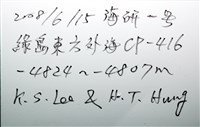 2008/6/15 海研一号
綠島東方外海CP-416
-4824~-4807m
K.S. Lee & H.T. Hung